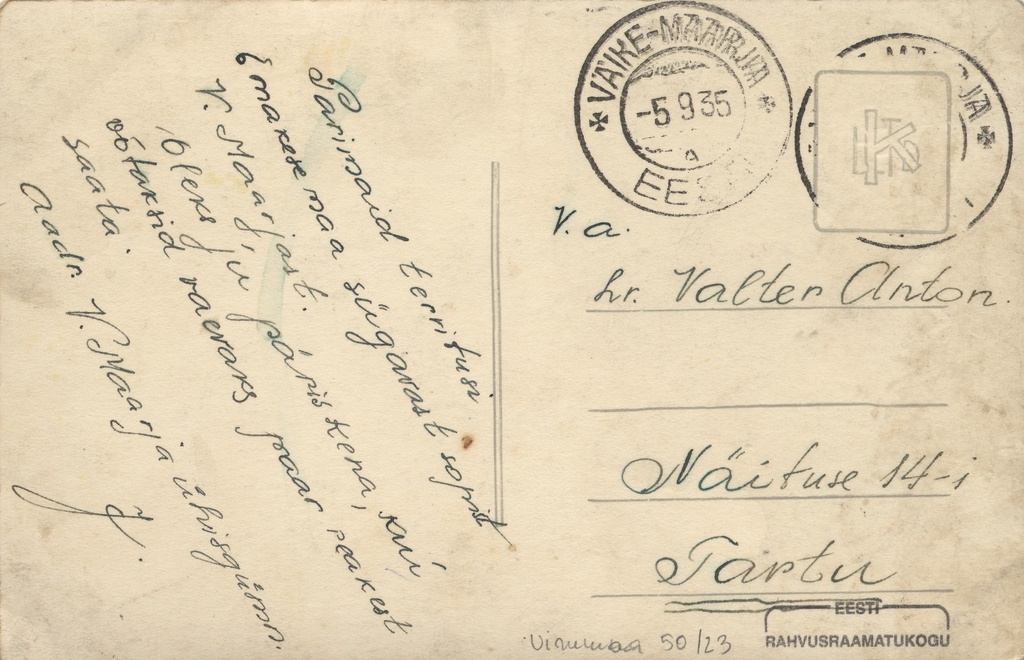 Parimaid territusi
Emakese maa sügavast sopist
V. Maarjast.
Oleks ju päris kena, kui
võtaksid vaevaks paar reakest
saata.
Aadr V. Maarja ühisgümn.
J.
VÄIKE-MAARJA
-5 9 35
a
EESTI
MAARJA
V. a.
hr. Valter Anton.
Näituse 14-1
Tartu
Virumaa 50/23
EESTI
RAHVUSRAAMATUKOGU